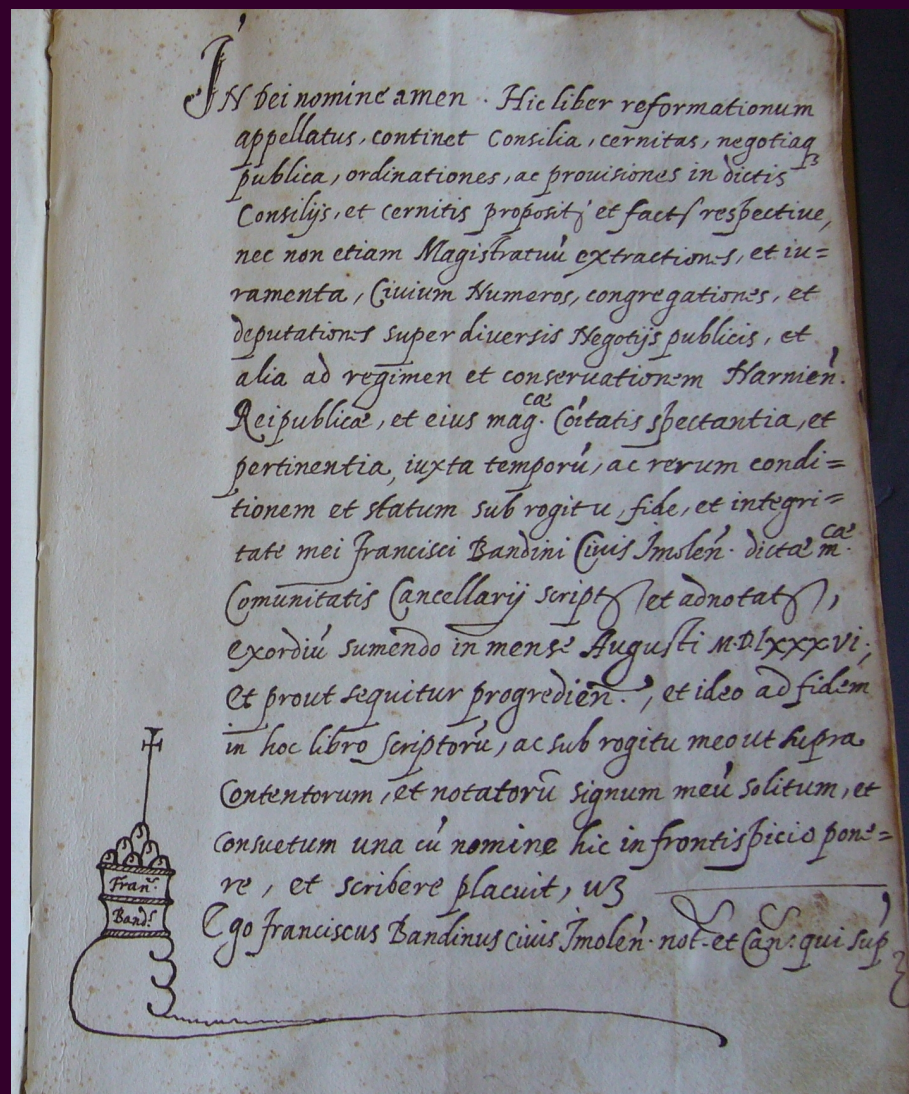 IN Dei nomine amen. Hic liber reformationum
appellatus, continet Consilia, cernitas, negotiaq3
publica, ordinationes, ac provisiones in dictis
Consilijs, et cernitis proposit et fact respective,
nec non etiam Magistratuū extractiones, et iu=
ramenta, Civium Numeros, congregationes, et
deputationes super diversis Negotijs publicis, et
alia ad regimen et conservationem Narnień.
Reipublicæ, et eius mag.cæ Coītatis spectantia, et
pertinentia, iuxta temporū, ac rerum condi=
tionem et statum sub rogitu, fide, et integri=
tate mei Francisci Bandini Civis Imoleń. dictæ m.cæ
Comunitatis Cancellarij script et adnotat,
exordiū sumendo in mense Augusti M.D.lxxxvi.;
Et prout sequitur progredień., et ideo ad fidem
in hoc libro scriptorū, ac sub rogitu meo ut supra
Contentorum, et notatorū signum meū solitum, et
consuetum una cū nomine hic in frontispicio pone=
re, et scribere placuit, u3
Ego Franciscus Bandinus civis Imoleń. not. et Can. qui sup
Fran.
Band.